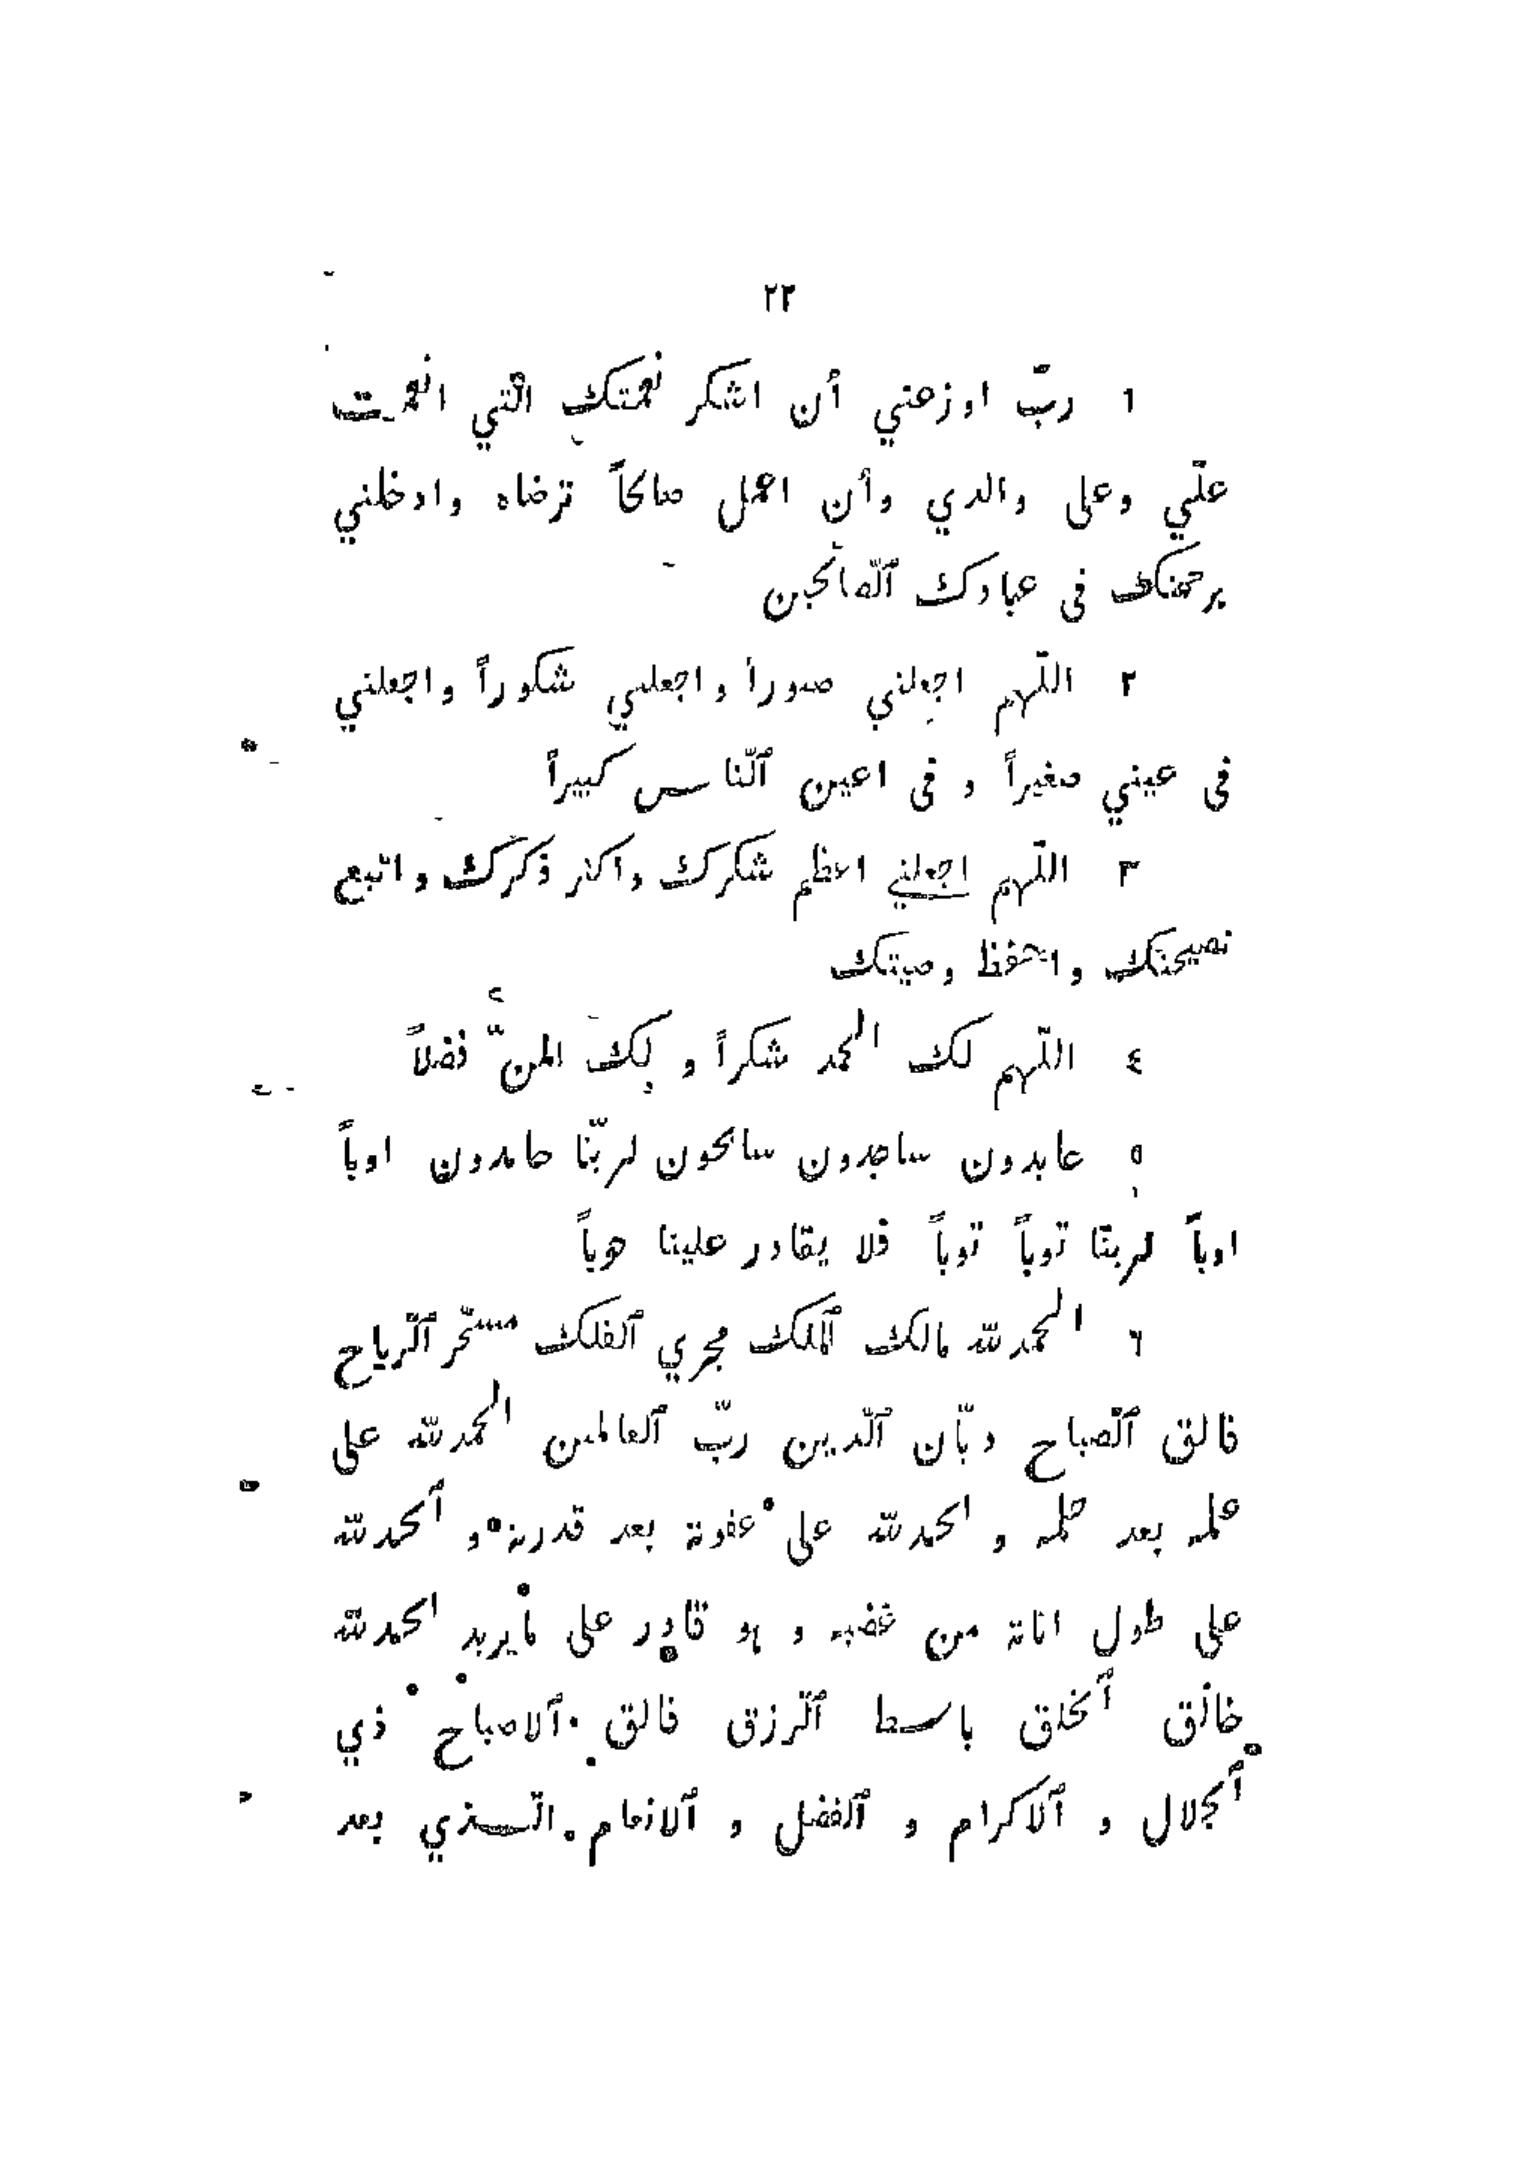 ٢٣
١ ربّ اوزعني أن اشكر نعمتك الّتي انعمت
علّي وعلى والدي وأن اعمل صالحاً ترضاه وادخلني
برحمتك فى عبادك ٱلّصالحين
٢ اللّهم اجعلني صبوراً واجعلني شكوراً واجعلني
فى عيني صغيراً و فى اعين ٱلّناس كبيراً
٣ اللّهم اجعلني اعظم شكرك واكثر ذكرك واتبع
نصيحتك واحفظ وصيتك
٤ اللّهم لك الحمد شكراً و لك المنّ فضلاً
٥ عابدون ساجدون سائحون لربّنا حامدون اوباً
اوباً لربنّا توباً توباً فلا يغادر علينا هوباً
٦ الحمدلله مالك ٱلملك مجري ٱلفلك مسخّر ٱلّرياح
فالق ٱلّصباح ديّان ٱلّدين ربّ ٱلعالمين الحمدلله على
علمه بعد حلمه و الحمدلله على عفوته بعد قدرته و ٱلحمدلله
على طول اناته من غضبه و هو قادر على مايريد الحمدلله
خالق ٱلخلق باسط ٱلّرزق فالق ٱلاصباح ذي
ٱلجلال و ٱلاكرام و ٱلفضل و ٱلانعام الّذي بعد